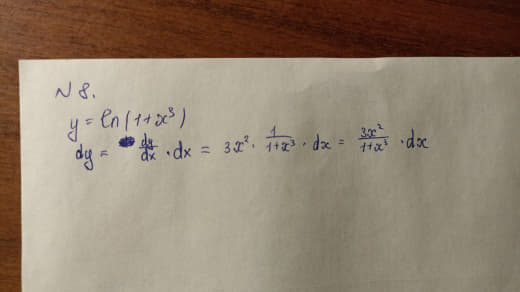 N 8.
y = ln(1+x³)
dy = dy/dx · dx = 3x² · 1/1+x³ · dx = 3x²/1+x³ · dx